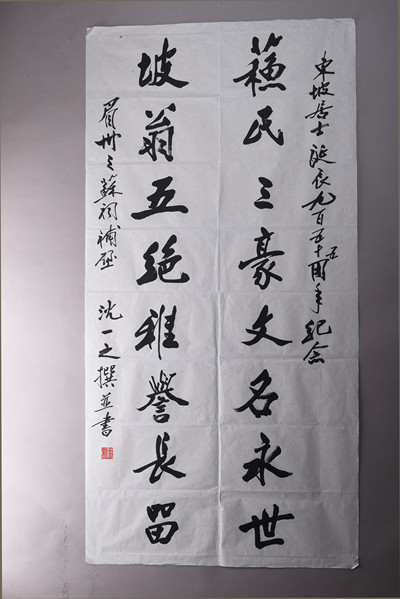 東坡居士誕辰九百五十五周年纪念
蘓氏三豪文名永世
坡翁五絕雅譽長留
眉州三蘇祠補壁 沈一之撰並書